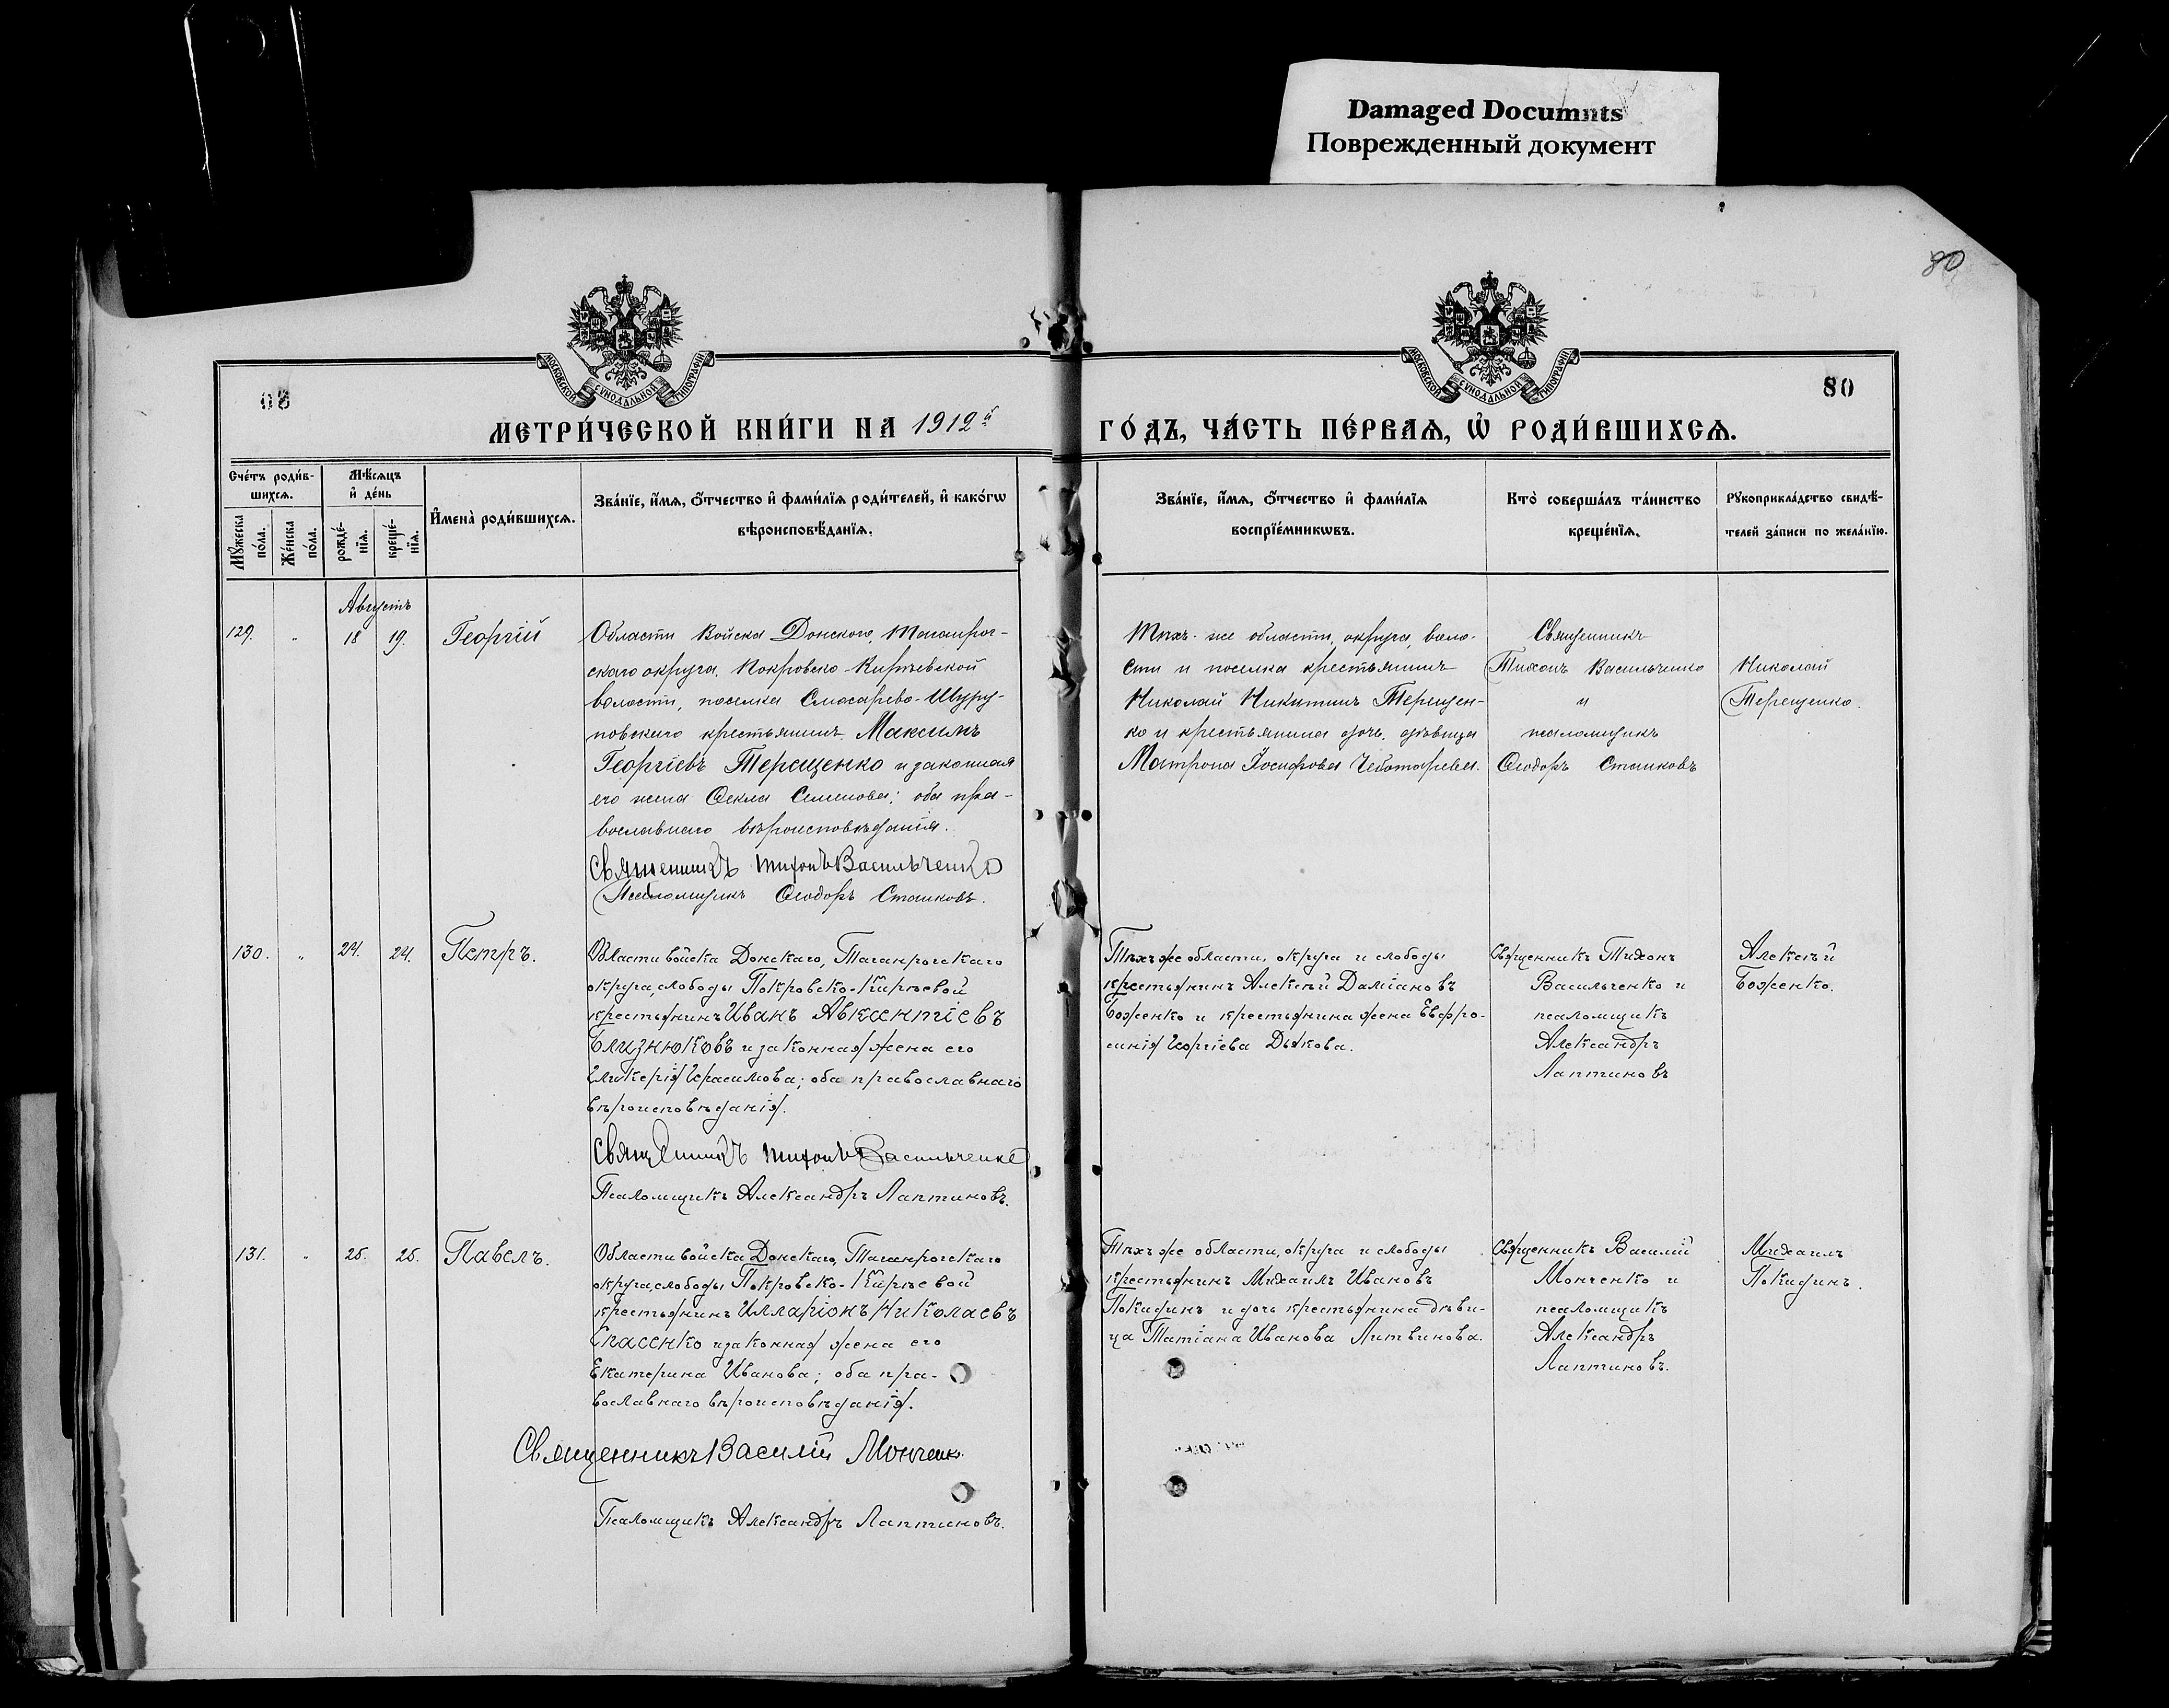 Damaged Documnts
Поврежденный документ
80
МОСКОВСКОЙ СУНОДАЛЬНОЙ ТИПОГРАФІИ
МОСКОВСКОЙ СУНОДАЛЬНОЙ ТИПОГРАФІИ
80
МЕТРИ́ЧЕСКОЙ КНИ́ГИ НА 1912й
ГО́ДЪ, ЧА́СТЬ ПЕ́РВАѦ, Ѡ҆ РОДИ́ВШИХСѦ.
Сче́тъ роди́в-
шихсѧ.
Мѣ́сѧцъ
и҆ де́нь
Мꙋ́жеска
по́ла.
Же́нска
по́ла.
рожде́-
нїѧ.
креще́-
нїѧ.
И҆мена̀ роди́вшихсѧ.
Зва́нїе, и҆́мѧ, ѻ҆́тчество и҆ фами́лїѧ роди́телей, и҆ како́гѡ
вѣроисповѣ́данїѧ.
Зва́нїе, и҆́мѧ, ѻ҆́тчество и҆ фами́лїѧ
воспрїе́мникѡвъ.
Кто̀ соверша́лъ та́инство
креще́нїѧ.
Рꙋкоприкла́дство свидѣ́-
телей за́писи по жела́нїю.
Августъ
129. " 18 19. Георгій
Области Войска Донского, Таганрог-
скаго округа, Покровско-Кирѣевской
волости, поселка Слюсарево-Шуру-
повскаго крестьянинъ Максимъ
Георгіевъ Терещенко и законная
его жена Ѳекла Семенова; оба пра-
вославнаго вѣроисповѣданія.
Священникъ Тихонъ Васильченко
Псаломщикъ Ѳеодоръ Станковъ.
Тѣхъ-же области, округа, воло-
сти и поселка крестьянинъ
Николай Никитинъ Терещен-
ко и крестьянина дочь, дѣвица
Матрона Іосифова Чеботарева.
Священникъ
Тихонъ Васильченко
и
псаломщикъ
Ѳеодоръ Станковъ
Николай
Терещенко.
130. " 24. 24. Петръ.
Области войска Донскаго, Таганрогскаго
округа, слободы Покровско-Кирѣевой
крестьянинъ Иванъ Авксентіевъ
Близнюковъ и законная жена его
Гликерія Герасимова; оба православнаго
вѣроисповѣданія.
Священникъ Тихонъ Васильченко
Псаломщикъ Александръ Лаптиновъ.
Тѣхъ же области, округа и слободы
крестьянинъ Алексѣй Даміановъ
Боженко и крестьянина жена Евфро-
синія Георгіева Дьякова.
Священникъ Тихонъ
Васильченко и
псаломщикъ
Александръ
Лаптиновъ
Алексѣй
Боженко.
131. " 25. 25. Павелъ.
Области войска Донскаго, Таганрогскаго
округа, слободы Покровско-Кирѣевой
крестьянинъ Илларіонъ Николаевъ
Спасенко и законная жена его
Екатерина Иванова; оба пра-
вославнаго вѣроисповѣданія.
Священникъ Василій Монченк
Псаломщикъ Александръ Лаптиновъ.
Тѣхъ же области, округа и слободы
крестьянинъ Михаилъ Ивановъ
Покидинъ и дочь крестьянина дѣви-
ца Татіана Иванова Литвинова.
Священникъ Василій
Монченко и
псаломщикъ
Александръ
Лаптиновъ.
Михаилъ
Покидинъ.